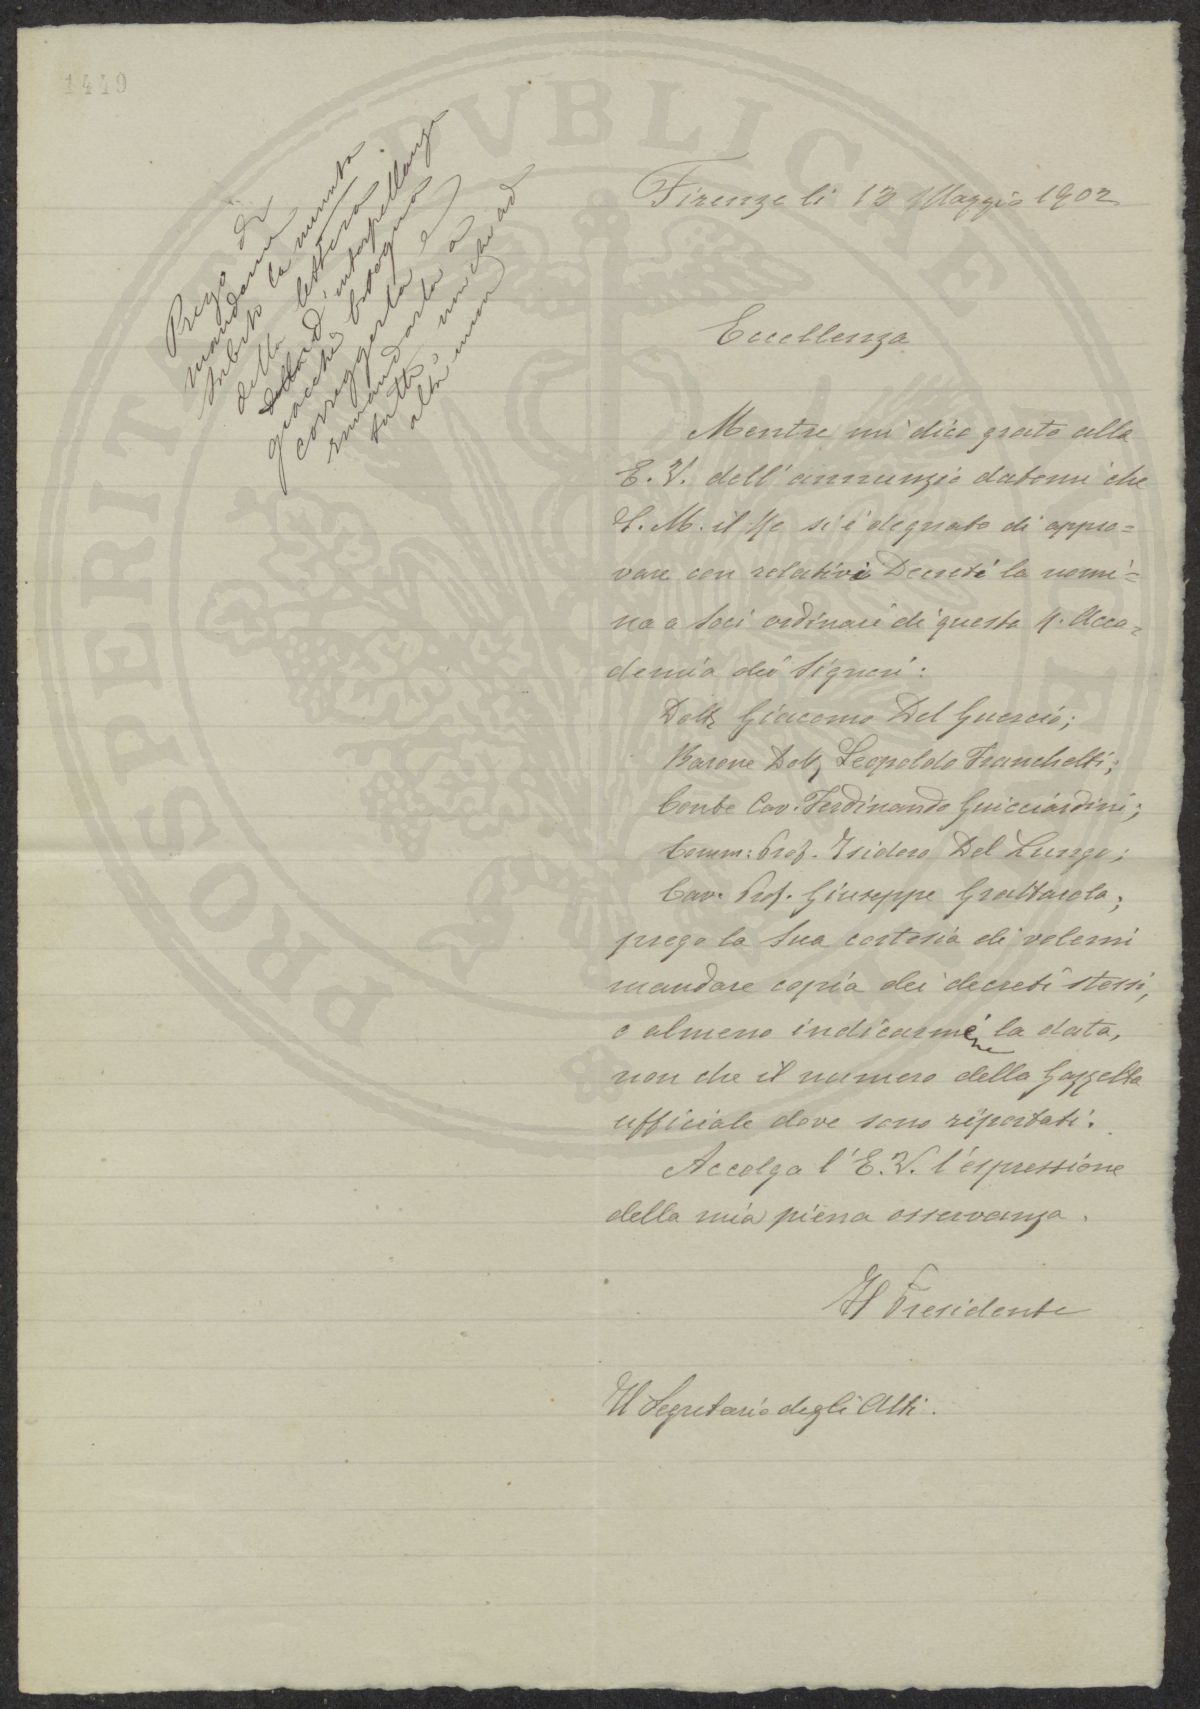 1449
Prego di
mandarmi
subito la minuta
della lettera
d'interpellanza
giacchè bisogna
correggerla e
rimandarla a
tutti non che ad
altri
Firenze li 13 Maggio 1902
Eccellenza
Mentre mi dico grato alla
E. V. dell'annunzio datomi che
S. M. il Re si è degnato di appro=
vare con relativi Decreti la nomi=
na a Soci ordinari di questa R. Acca=
demia dei Signori:
Dott. Giacomo Del Guercio;
Barone Dott. Leopoldo Franchetti;
Conte Cav. Ferdinando Guicciardini;
Comm: Prof. Isidoro Del Lungo;
Cav. Prof. Giuseppe Grattarola;
prego la Sua cortesia di volermi
mandare copia dei decreti stessi,
o almeno indicarmene la data,
non che il numero della Gazzetta
ufficiale dove sono riportati.
Accolga l'E. V. l'espressione
della mia piena osservanza.
Il Presidente
Il Segretario degli Atti.
PROSPERITATI PVBLICAE AVGENDAE